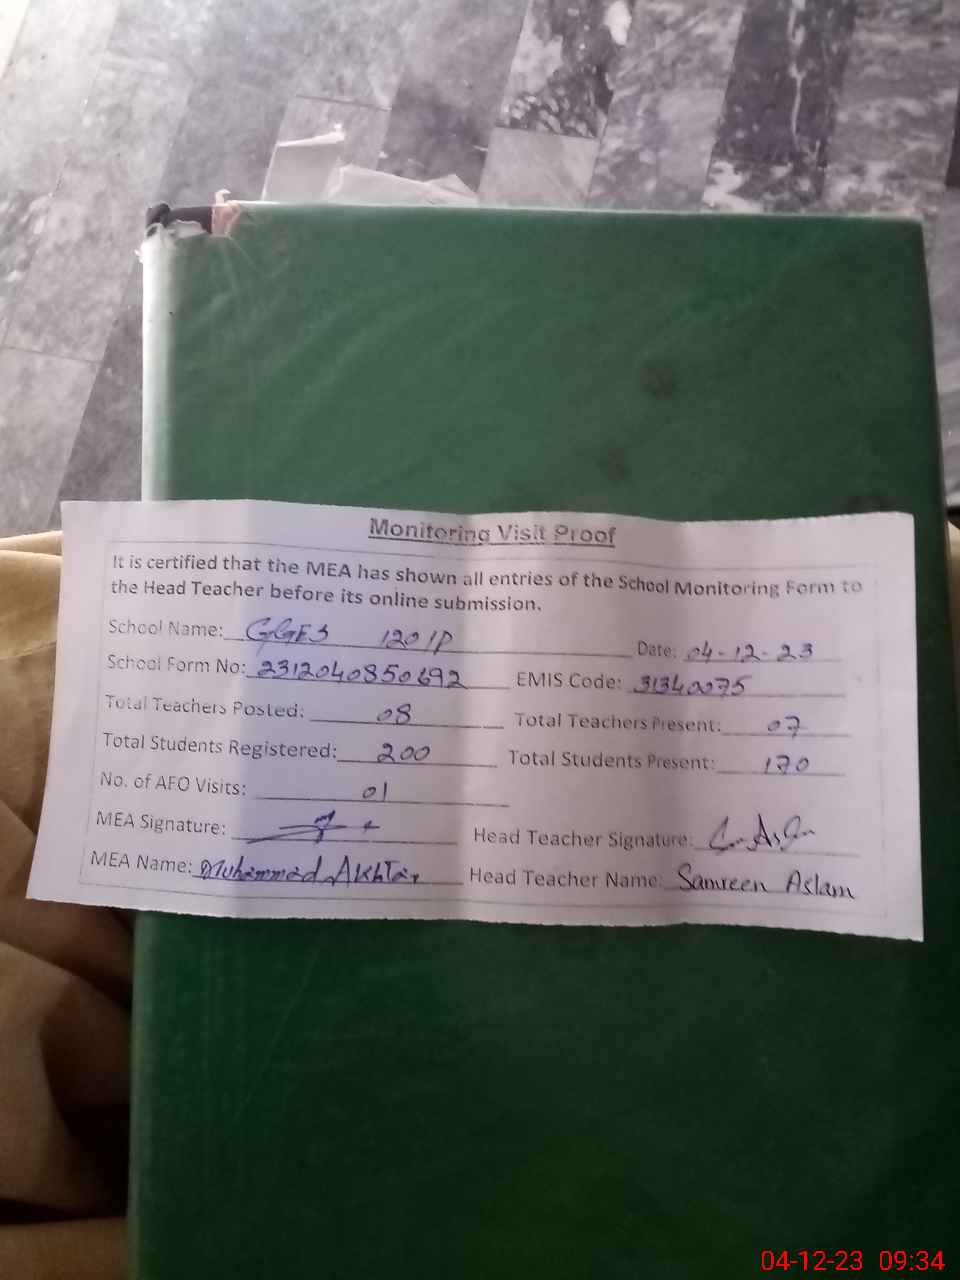 Monitoring Visit Proof
It is certified that the MEA has shown all entries of the School Monitoring Form to
the Head Teacher before its online submission.
School Name: GGES 120 1P Date: 04-12-23
School Form No: 2312040850692 EMIS Code: 31340075
Total Teachers Posted: 08 Total Teachers Present: 07
Total Students Registered: 200 Total Students Present: 170
No. of AEO Visits: 01
MEA Signature: Head Teacher Signature:
MEA Name: Muhammad Akhtar Head Teacher Name: Samreen Aslam
04-12-23 09:34